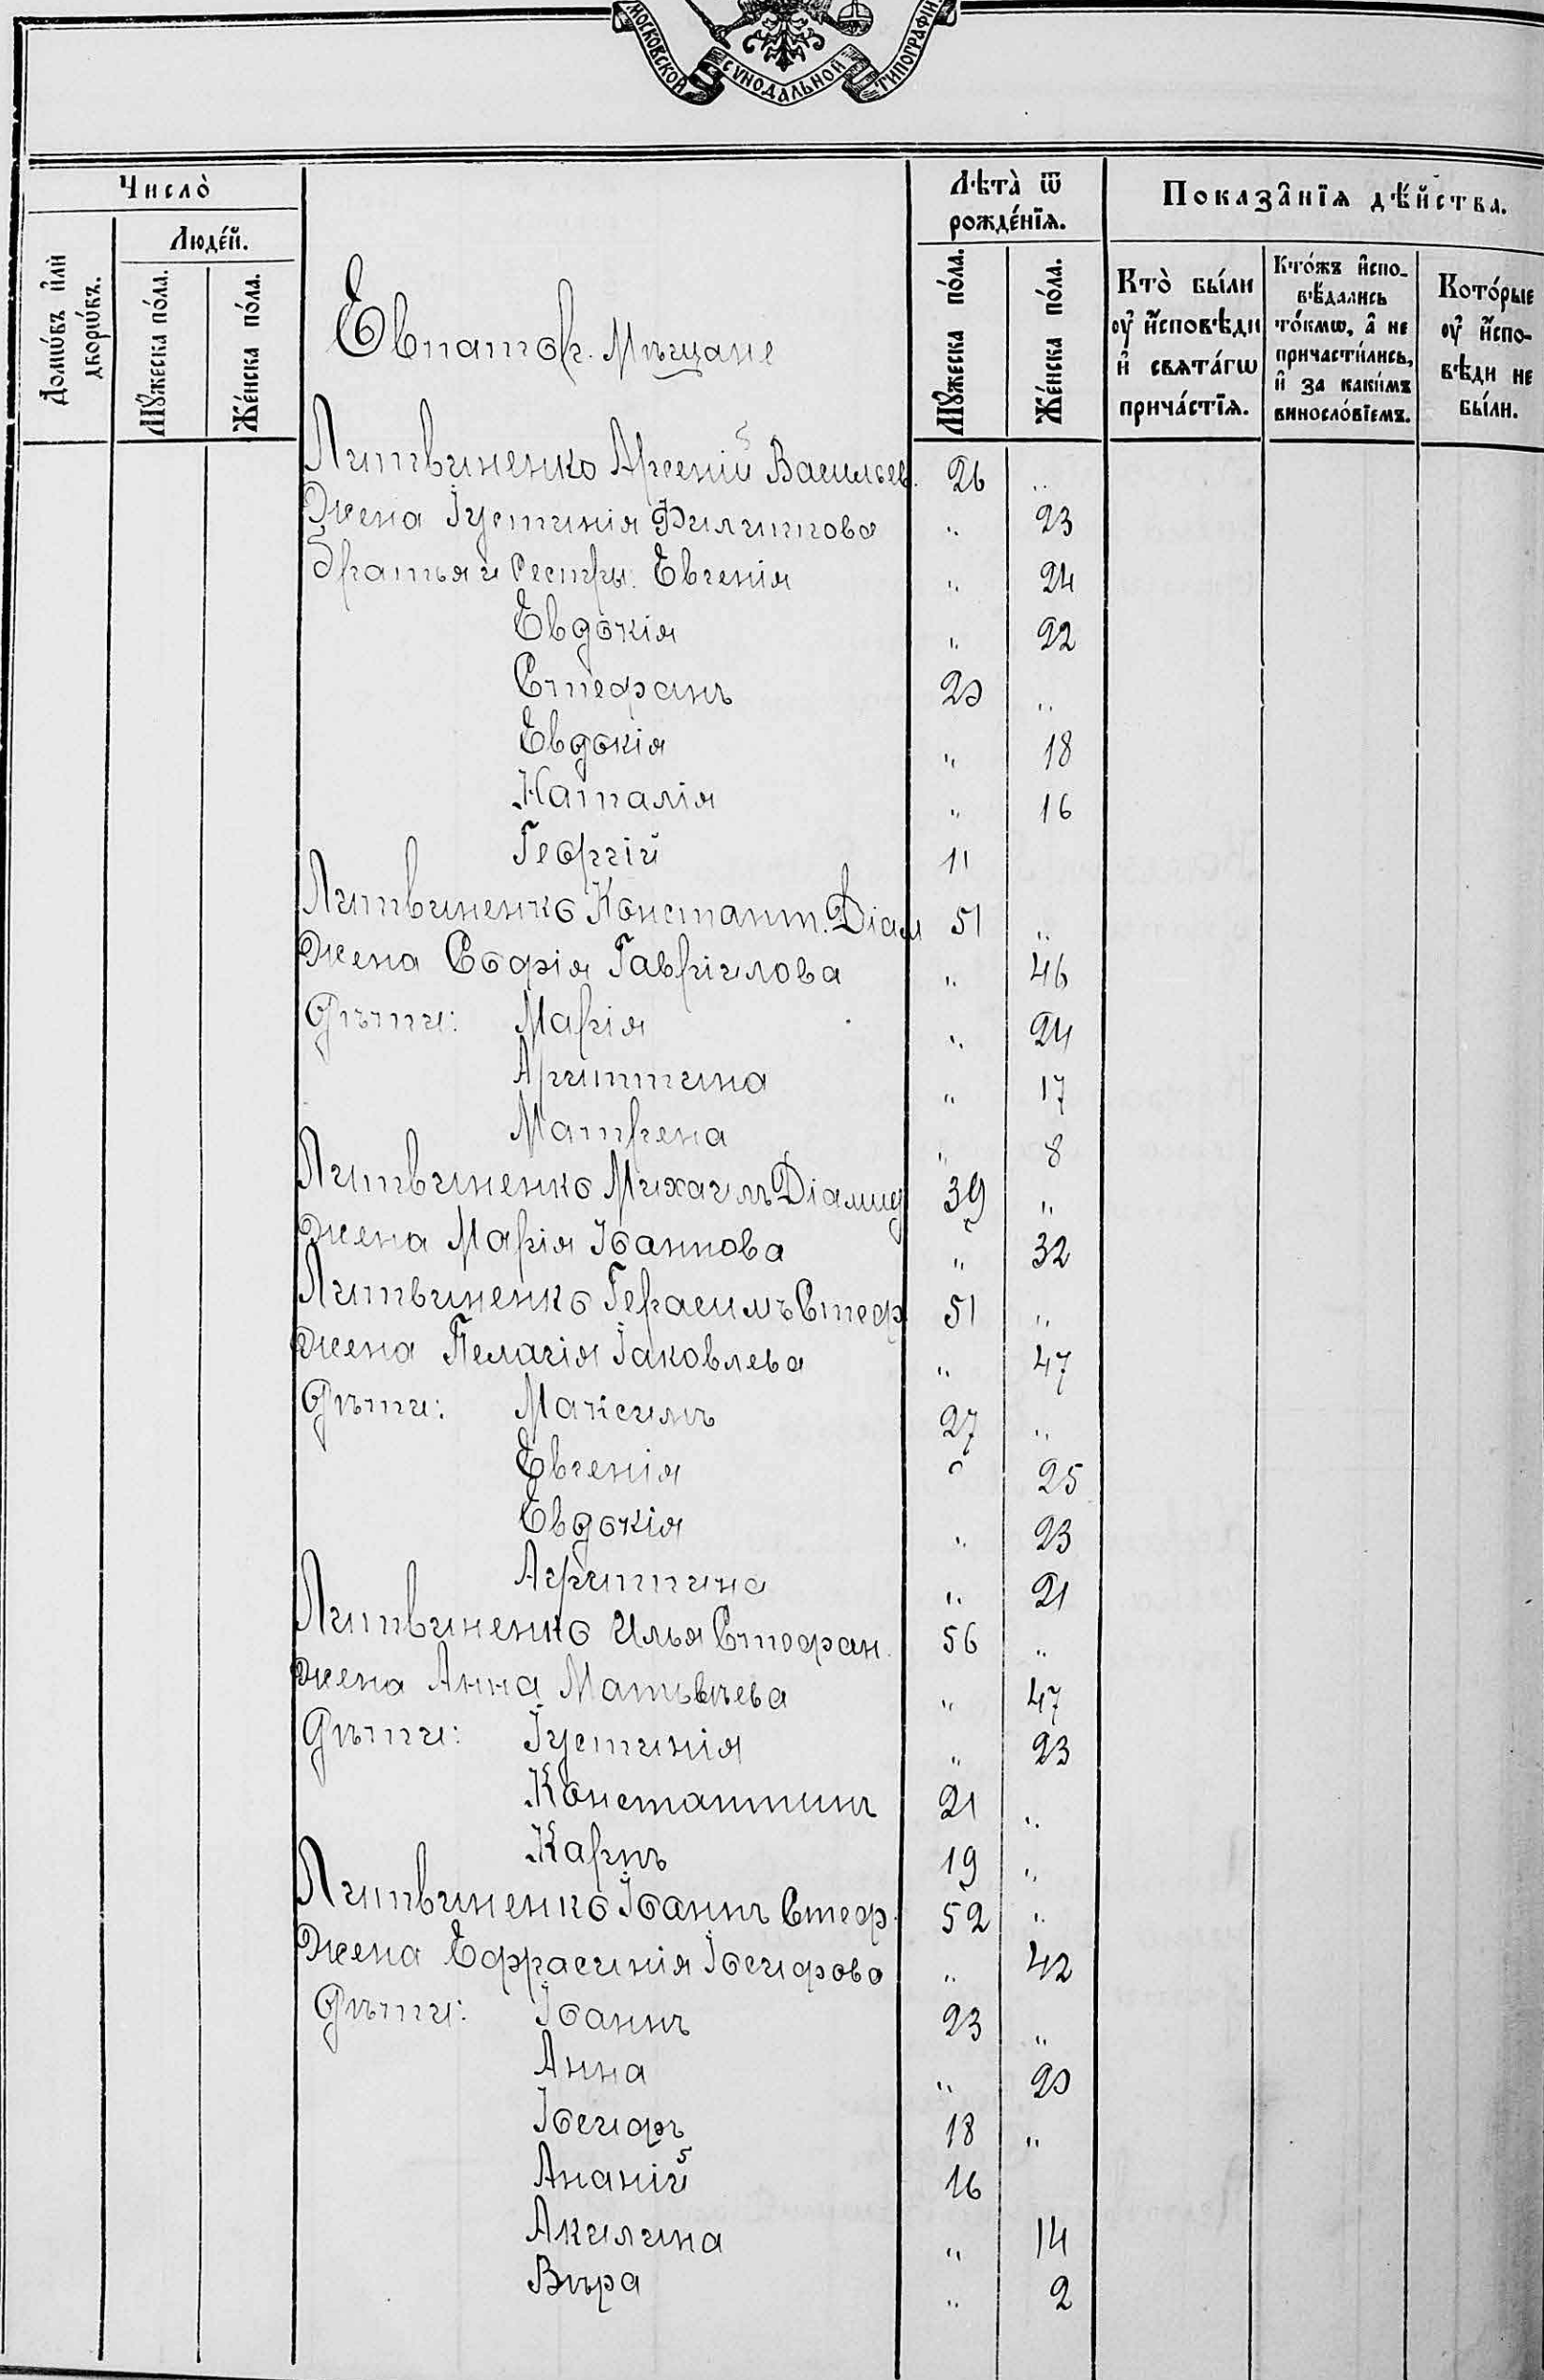 МОСКОВСКОЙ СѴНОДАЛЬНОЙ ТИПОГРАФІИ
Число̀
Домѡ́въ и҆лѝ дворѡ́въ.
Люде́й.
Мꙋ́жеска по́ла.
Же́нска по́ла.
Лѣ́та ѿ рожде́нїѧ.
Мꙋ́жеска по́ла.
Же́нска по́ла.
Показа̑нїѧ дѣ́йства.
Кто̀ бы́ли оу҆ и҆́сповѣди и҆ свята́гѡ прича́стїѧ.
Кто́жъ и҆сповѣ́дались то́кмѡ, а҆ не причасти́лись, и҆ за каки́мъ винослов́їемъ.
Кото́рые оу҆ и҆́сповѣди не бы́ли.
Евпатор. Мѣщане
Литвиненко Арсеній Васильев. 26 "
Жена Іустинія Филиппова " 23
Братья и Сестры: Евгенія " 24
Евдокія " 22
Стефанъ 20 "
Евдокія " 18
Наталія " 16
Георгій 11
Литвиненко Константин. Діам 51 "
Жена Софія Гавріилова " 46
Дѣти: Марія " 24
Агриппина " 17
Матрена " 8
Литвиненко Михаилъ Діамид 39 "
Жена Марія Іоаннова " 32
Литвиненко Герасимъ Стеф 51 "
Жена Пелагія Іаковлева " 47
Дѣти: Максимъ 27 "
Евгенія " 25
Евдокія " 23
Агриппина " 21
Литвиненко Илья Стефан. 56 "
Жена Анна Матвѣева " 47
Дѣти: Іустинія " 23
Константинъ 21 "
Карпъ 19 "
Литвиненко Іоаннъ Стеф. 52 "
Жена Ефрасинія Іосифова " 42
Дѣти: Іоаннъ 23 "
Анна " 20
Іосифъ 18 "
Ананій 16
Акилина " 14
Вѣра " 2